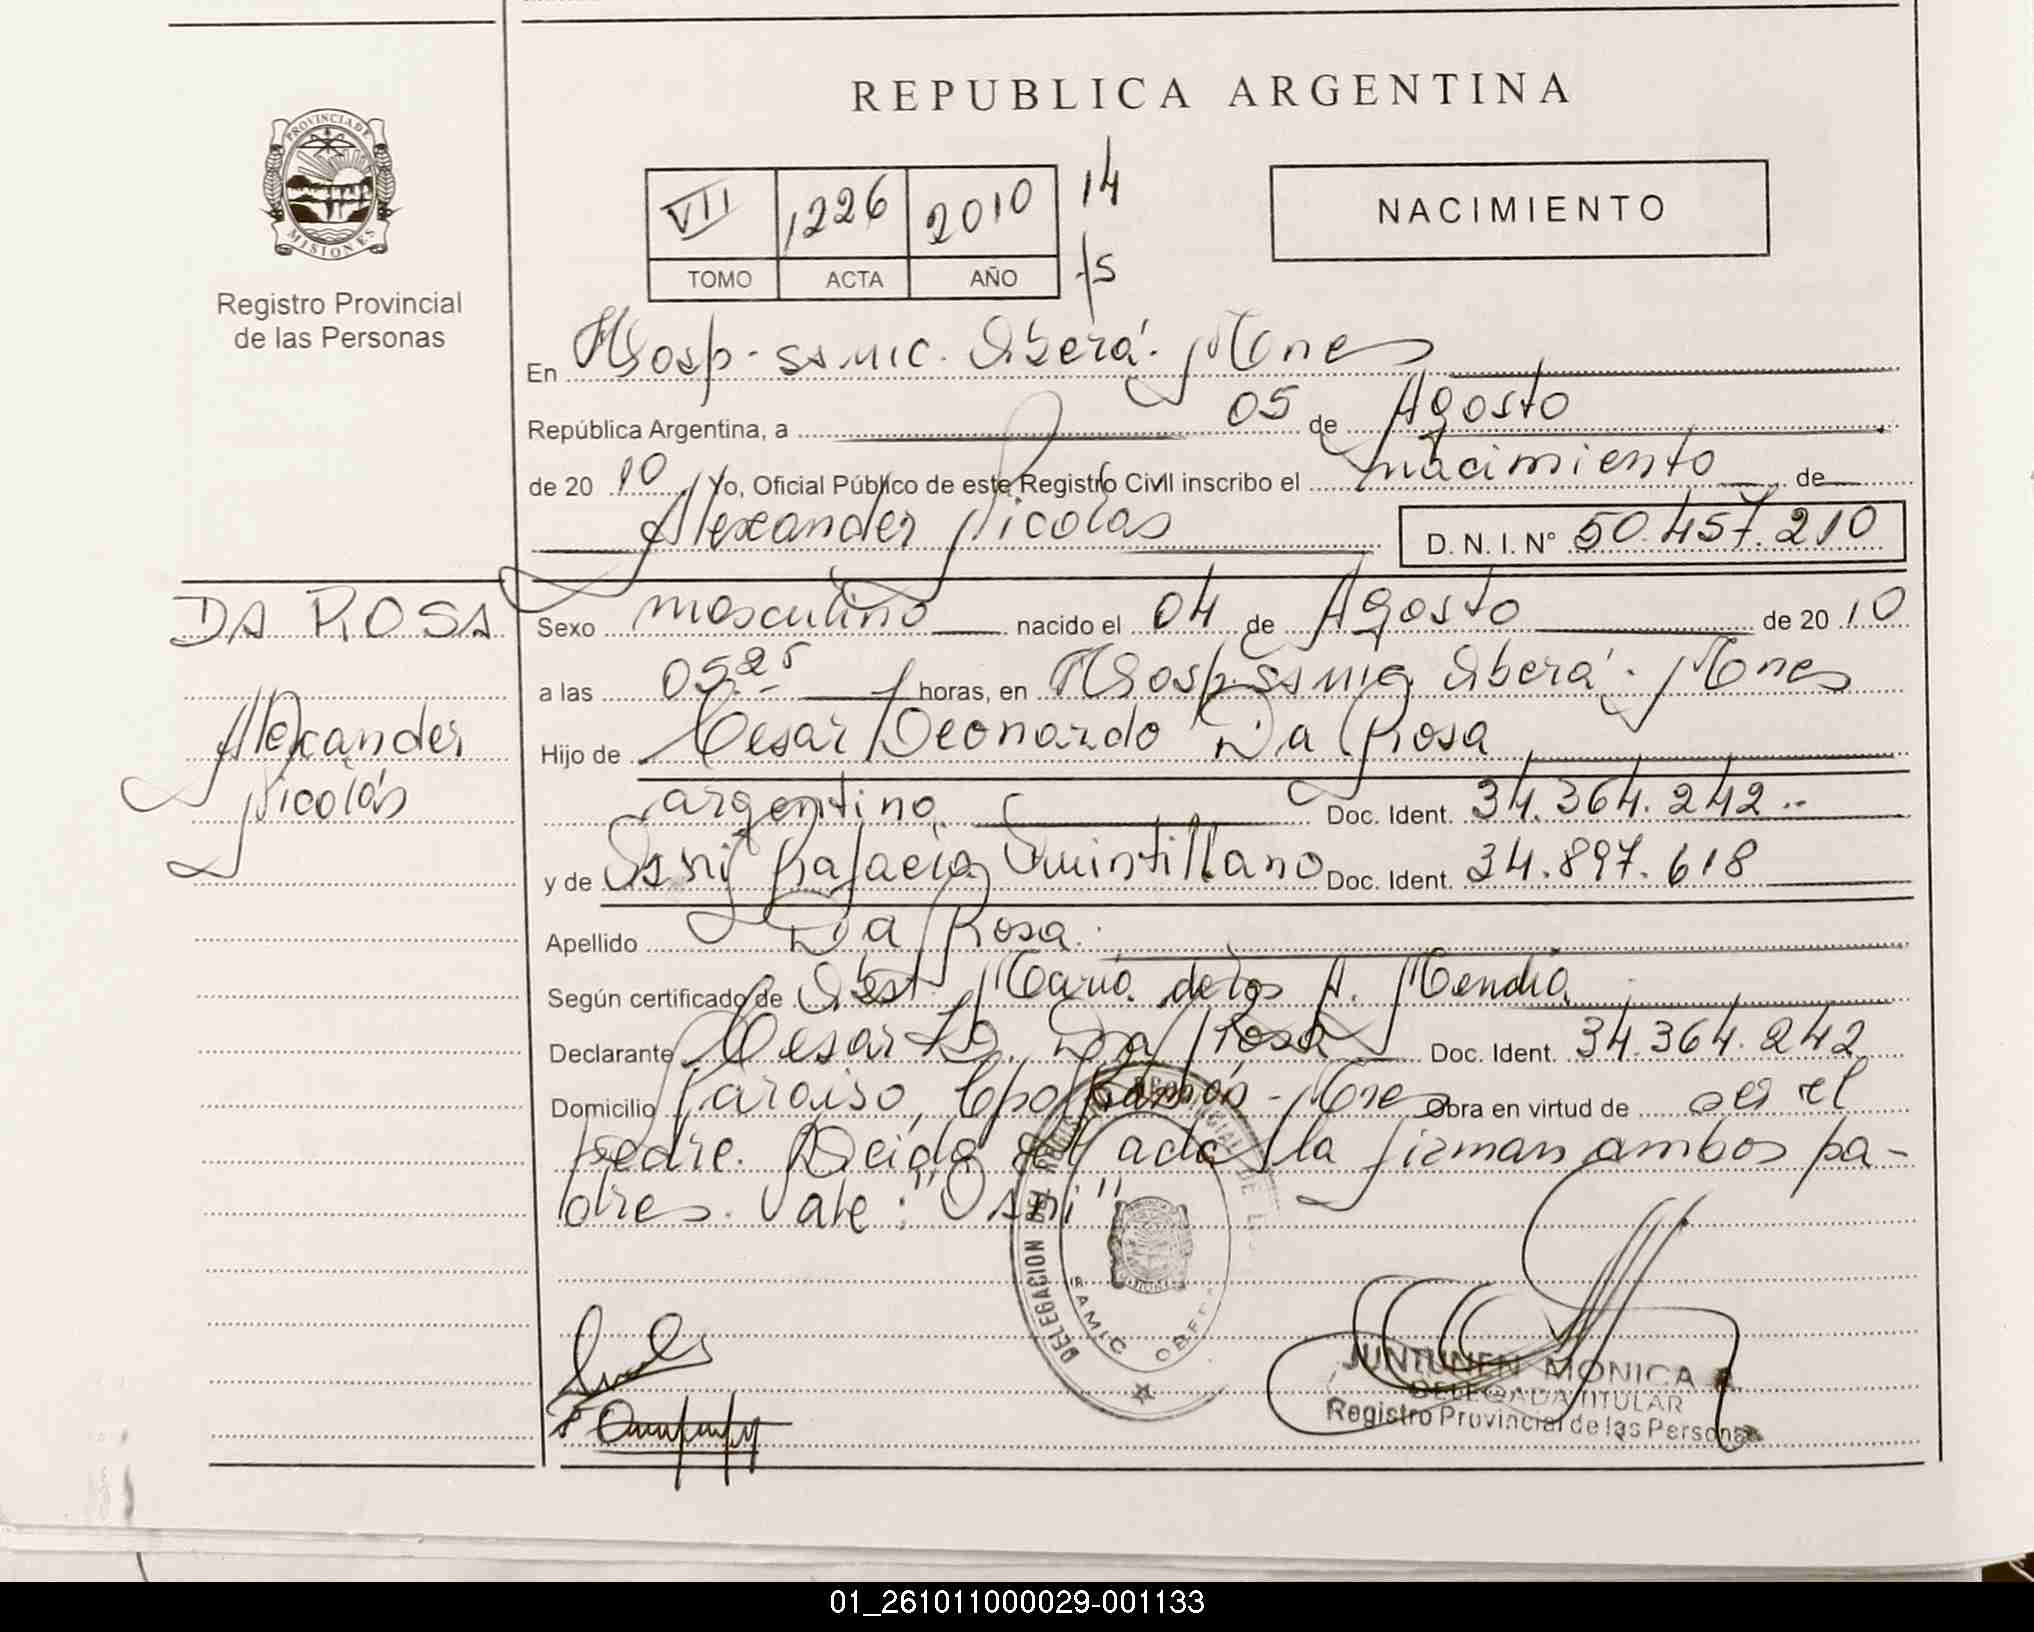 REPUBLICA ARGENTINA
PROVINCIA DE MISIONES
Registro Provincial
de las Personas
VII 1226 2010 14
TOMO ACTA AÑO 15
NACIMIENTO
En Hosp. Obera. Mnes
República Argentina, a 05 de Agosto
de 20 10 Yo, Oficial Público de este Registro Civil inscribo el nacimiento de
Alexander Nicolás
D. N. I. Nº 50.457.210
DA ROSA
Alexander
Nicolás
Sexo masculino nacido el 04 de Agosto de 20 10
a las 05.25 horas, en Hosp. Oberá. Mnes
Hijo de Cesar Leonardo Da Rosa
argentino Doc. Ident. 34.364.242..
y de Quintillano Doc. Ident. 34.897.618
Apellido Da Rosa.
Según certificado de Obst. María de los A. Mendia
Declarante Cesar L. Da Rosa Doc. Ident. 34.364.242
Domicilio Paraiso, Cpo Ramón - Mnes Obra en virtud de ser el
padre. Leida el acta la firman ambos pa-
dres. Vale:
DELEGACION DEL REGISTRO PROVINCIAL DE
JUNTUNEN MONICA
DELEGADA TITULAR
Registro Provincial de las Personas
01_261011000029-001133